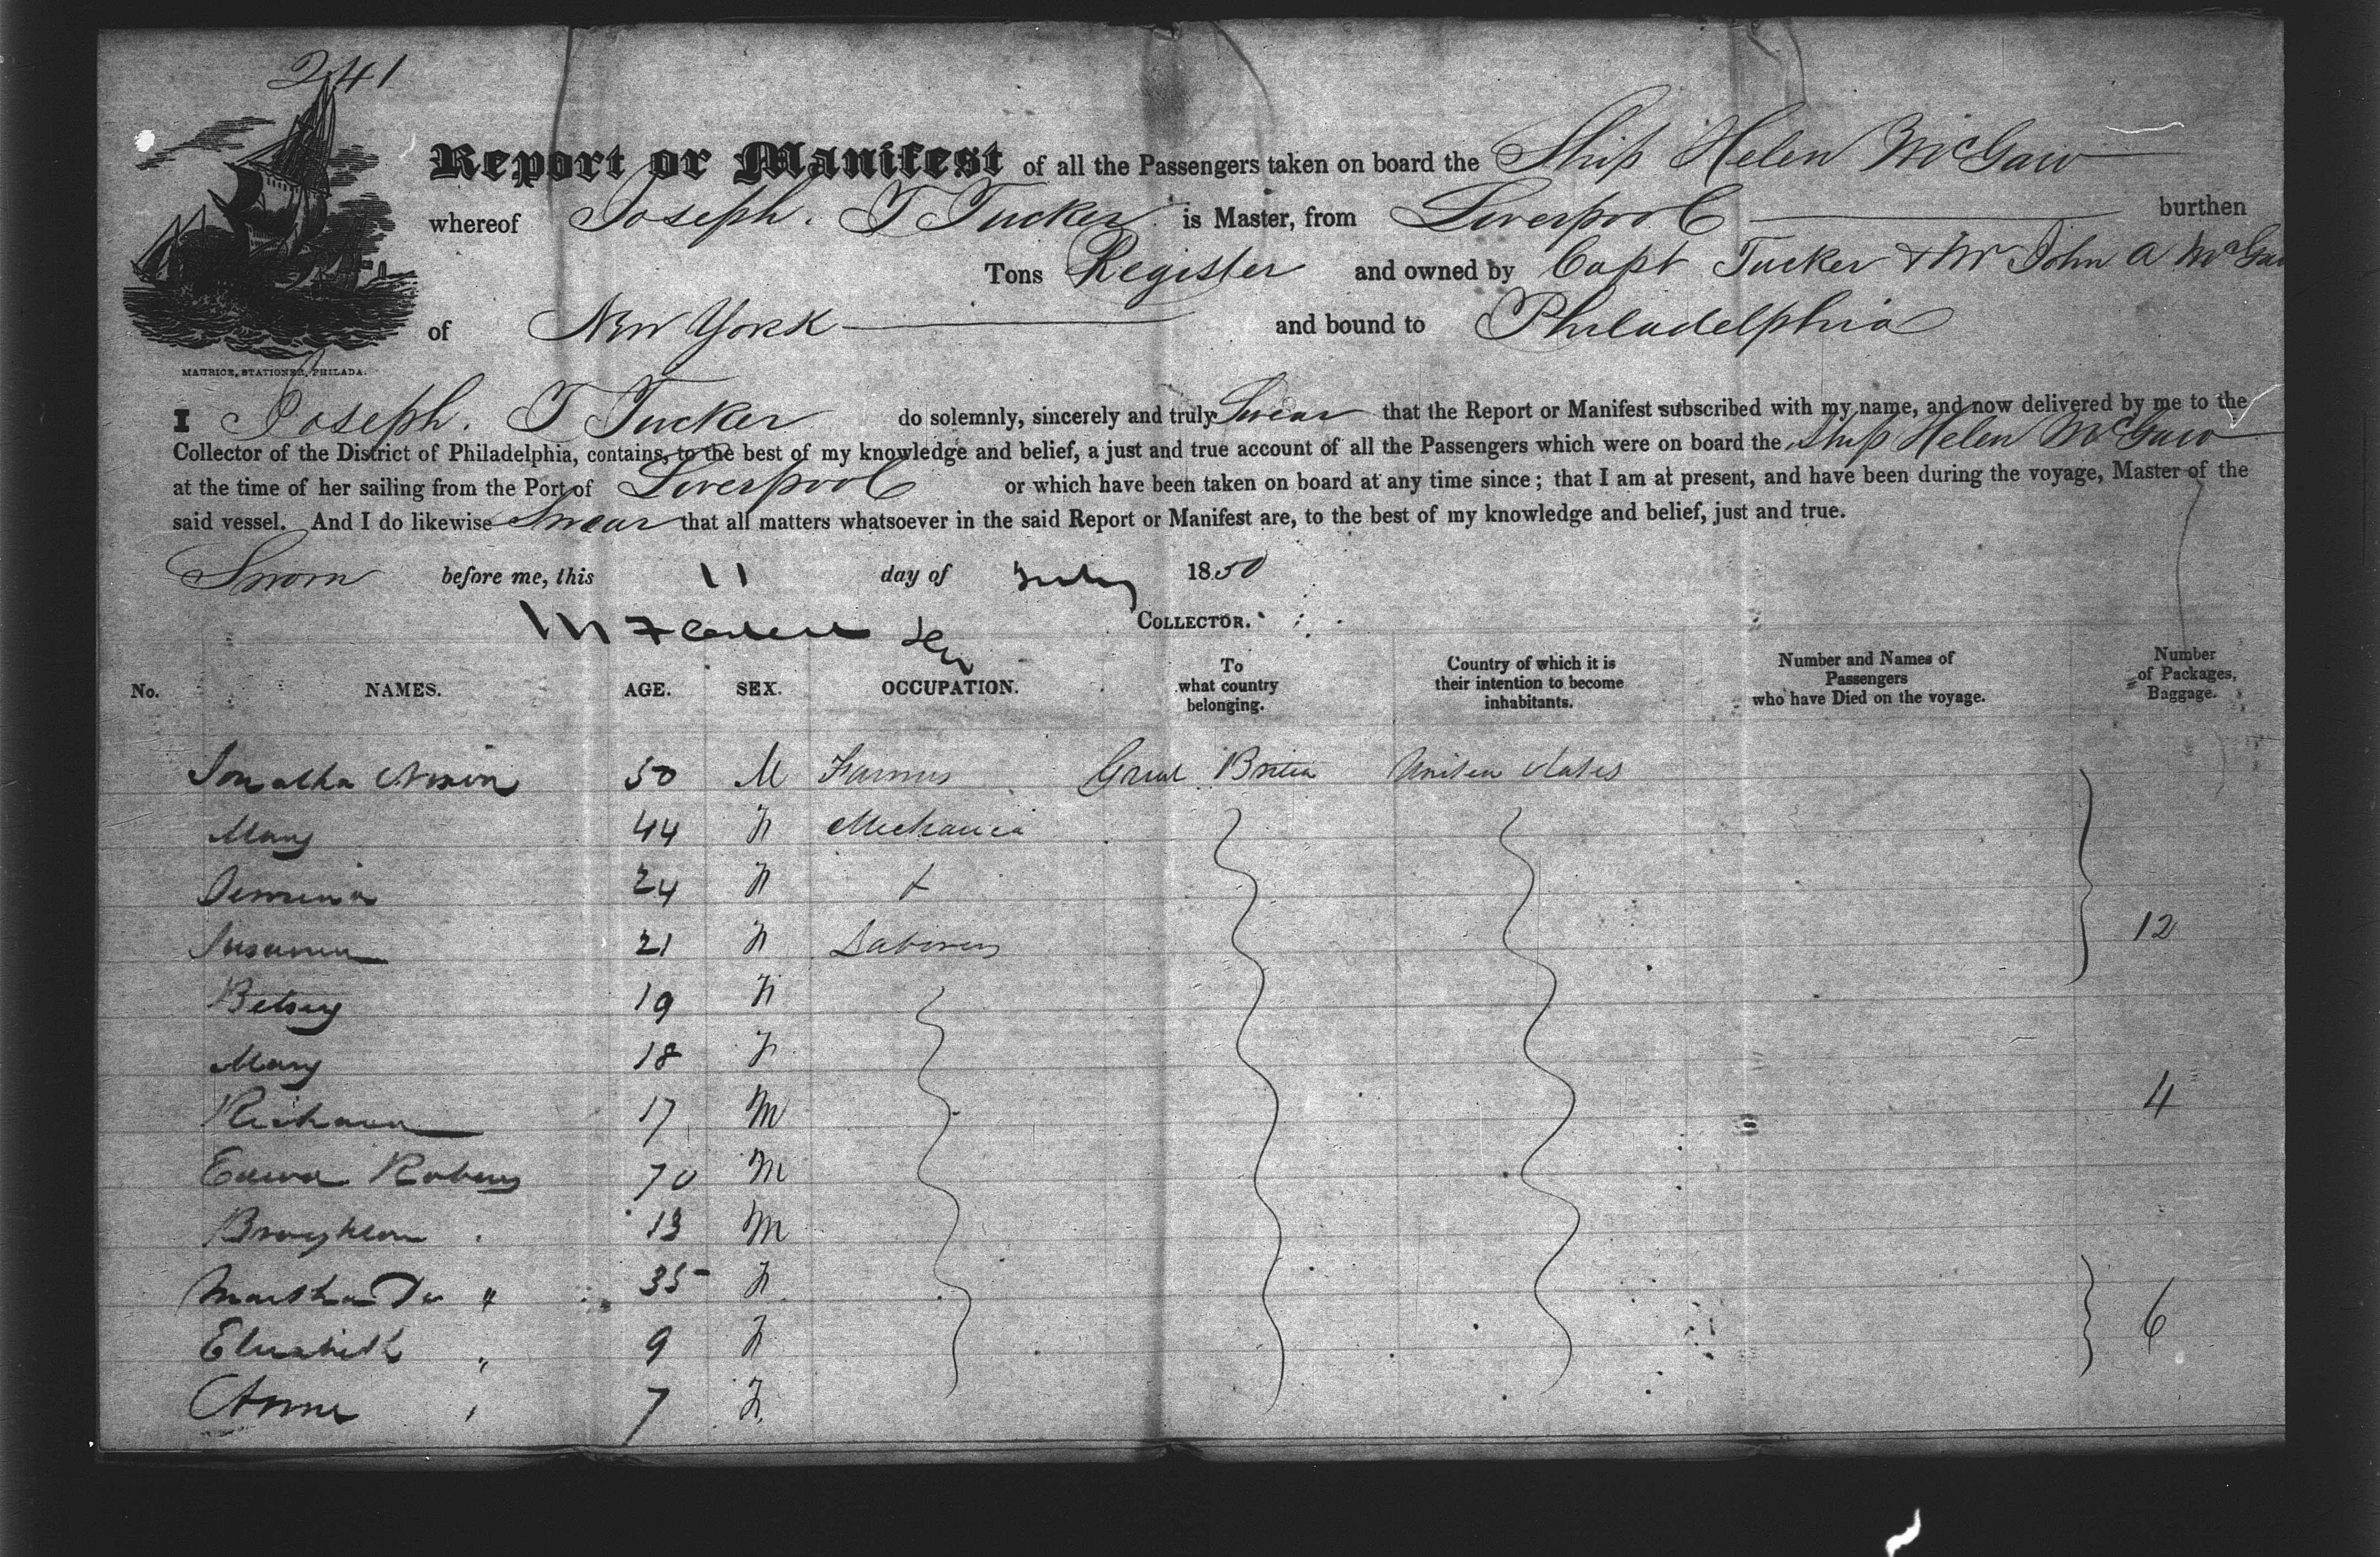 241
Report or Manifest of all the Passengers taken on board the Ship Helen McGaw
whereof Joseph. T Tucker is Master, from Liverpool burthen
Tons Register and owned by Capt Tucker & Mr John A McGaw
of New York and bound to Philadelphia
MAURICE, STATIONER, PHILADA.
I Joseph. T Tucker do solemnly, sincerely and truly Swear that the Report or Manifest subscribed with my name, and now delivered by me to the
Collector of the District of Philadelphia, contains, to the best of my knowledge and belief, a just and true account of all the Passengers which were on board the Ship Helen McGaw
at the time of her sailing from the Port of Liverpool or which have been taken on board at any time since; that I am at present, and have been during the voyage, Master of the
said vessel. And I do likewise Swear that all matters whatsoever in the said Report or Manifest are, to the best of my knowledge and belief, just and true.
Sworn before me, this 11 day of July 1850
COLLECTOR.
No. NAMES. AGE. SEX. OCCUPATION. To what country belonging. Country of which it is their intention to become inhabitants. Number and Names of Passengers who have Died on the voyage. Number of Packages, Baggage.
50 M Farmers Great Britain United States
Mary 44 F Mechanics
24 F &
Susanna 21 F Laborers 12
Betsey 19 F
Mary 18 F
Richard 17 M 4
Edward Roberts 70 M
Broughton 13 M
Martha Do " 35 F
Elizabeth " 9 F 6
Anne " 7 F